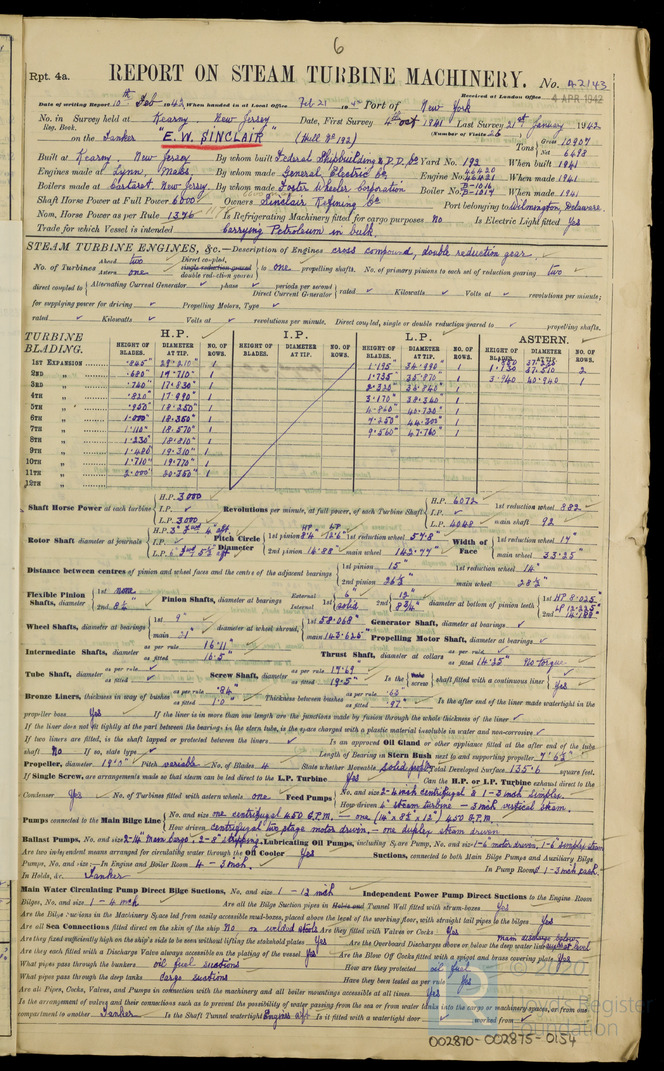 6
Rpt. 4a.
REPORT ON STEAM TURBINE MACHINERY. No. A2143
Received at London Office 4 APR 1942
Date of writing Report 10th Feb 1942 When handed in at Local Office Feb 21 1942 Port of New York
No. in Survey held at Kearny, New Jersey Date, First Survey 4th Oct 1941 Last Survey 21st January 1942
Reg. Book. (Number of Visits 26)
on the Tanker "E. W. SINCLAIR" (Hull No 192) Tons Gross 10907 Net 6693
Built at Kearny New Jersey By whom built Federal Shipbuilding & D.D. Co Yard No. 192 When built 1941
Engines made at Lynn, Mass. By whom made General Electric Co Engine No. 44420 44421 When made 1941
Boilers made at Carteret, New Jersey By whom made Foster Wheeler Corporation Boiler No. B-1016 B-1017 When made 1941
Shaft Horse Power at Full Power 6600 Owners Sinclair Refining Co Port belonging to Wilmington, Delaware
Nom. Horse Power as per Rule 1376 Is Refrigerating Machinery fitted for cargo purposes No Is Electric Light fitted Yes
Trade for which Vessel is intended Carrying Petroleum in bulk.
STEAM TURBINE ENGINES, &c.—Description of Engines cross compound, double reduction gear.
No. of Turbines Ahead two Astern one Direct coupled, single reduction geared double reduction geared to one propelling shafts. No. of primary pinions to each set of reduction gearing two
direct coupled to Alternating Current Generator phase periods per second Direct Current Generator rated Kilowatts Volts at revolutions per minute;
for supplying power for driving Propelling Motors, Type
rated Kilowatts Volts at revolutions per minute. Direct coupled, single or double reduction geared to propelling shafts.
TURBINE BLADING. H.P. I.P. L.P. ASTERN.
HEIGHT OF BLADES. DIAMETER AT TIP. NO. OF ROWS. HEIGHT OF BLADES. DIAMETER AT TIP. NO. OF ROWS. HEIGHT OF BLADES. DIAMETER AT TIP. NO. OF ROWS. HEIGHT OF BLADES. DIAMETER AT TIP. NO. OF ROWS.
1ST EXPANSION 1 1.195" 1 2
2ND " .680" 17.710" 1 1.735" 35.870" 1 3.940" 40.940" 1
3RD " .740" 17.830" 1 1
4TH " .820" 17.990" 1 3.170" 38.340" 1
5TH " .950" 18.250" 1 4.840" 40.720" 1
6TH " 1.000" 18.350" 1 7.250" 44.300" 1
7TH " 1.110" 18.570" 1 9.560" 47.760" 1
8TH " 1.230" 18.810" 1
9TH " 1.480" 19.310" 1
10TH " 1.710" 19.770" 1
11TH " 2.000" 20.350" 1
12TH "
Shaft Horse Power at each turbine H.P. 3000 I.P. L.P. 3000 Revolutions per minute, at full power, of each Turbine Shaft H.P. 6072 I.P. L.P. 4048 1st reduction wheel 882 main shaft 92
Rotor Shaft diameter at journals H.P. I.P. L.P. Pitch Circle Diameter 1st pinion 1st reduction wheel 57.8 2nd pinion 14.88 main wheel 142.77" Width of Face 1st reduction wheel 17" main wheel 33.25"
Distance between centres of pinion and wheel faces and the centre of the adjacent bearings 1st pinion 15" 2nd pinion 26½" 1st reduction wheel 14" main wheel 28½"
Flexible Pinion Shafts, diameter 1st none 2nd 8½" Pinion Shafts, diameter at bearings External Internal 1st 6" solid 2nd 12" 8¾" diameter at bottom of pinion teeth 1st HP 8.025" LP 12.225" 2nd 14.188"
Wheel Shafts, diameter at bearings 1st 9" main diameter at wheel shroud, 1st 58.068" main 143.625" Generator Shaft, diameter at bearings Propelling Motor Shaft, diameter at bearings
Intermediate Shafts, diameter as per rule 16.11" as fitted 16.5" Thrust Shaft, diameter at collars as per rule as fitted 14.25" No torque
Tube Shaft, diameter as per rule as fitted Screw Shaft, diameter as per rule 17.69" as fitted 19.5" Is the tube screw shaft fitted with a continuous liner Yes
Bronze Liners, thickness in way of bushes as per rule .84" as fitted 1.0" Thickness between bushes as per rule .63" as fitted .97" Is the after end of the liner made watertight in the
propeller boss Yes If the liner is in more than one length are the junctions made by fusion through the whole thickness of the liner
If the liner does not fit tightly at the part between the bearings in the stern tube, is the space charged with a plastic material insoluble in water and non-corrosive
If two liners are fitted, is the shaft lapped or protected between the liners Is an approved Oil Gland or other appliance fitted at the after end of the tube
shaft No If so, state type Length of Bearing in Stern Bush next to and supporting propeller 7'6½"
Propeller, diameter 19'0" Pitch variable No. of Blades 4 State whether Moveable solid prop. Total Developed Surface 135.6 square feet.
If Single Screw, are arrangements made so that steam can be led direct to the L.P. Turbine Yes Can the H.P. or I.P. Turbine exhaust direct to the
Condenser Yes No. of Turbines fitted with astern wheels one Feed Pumps No. and size 2-4 inch centrifugal & 1-3 inch simplex How driven 4" steam turbine — 3 inch vertical steam.
Pumps connected to the Main Bilge Line No. and size one centrifugal 450 G.P.M. — one (14" x 8½" x 12") 450 G.P.M. How driven centrifugal two stage motor driven — one duplex steam driven
Ballast Pumps, No. and size 2-14" main cargo, 2-8" stripping. Lubricating Oil Pumps, including Spare Pump, No. and size 1-6" motor driven, 1-6" simplex steam
Are two independent means arranged for circulating water through the Oil Cooler Yes Suctions, connected to both Main Bilge Pumps and Auxiliary Bilge
Pumps, No. and size:—In Engine and Boiler Room 4 — 3 inch. In Pump Room 1 - 3 inch each.
In Holds, &c. Tanker
Main Water Circulating Pump Direct Bilge Suctions, No. and size 1 - 12 inch Independent Power Pump Direct Suctions to the Engine Room
Bilges, No. and size 1 - 4 inch Are all the Bilge Suction pipes in Holds and Tunnel Well fitted with strum-boxes Yes
Are the Bilge Suctions in the Machinery Space led from easily accessible mud-boxes, placed above the level of the working floor, with straight tail pipes to the bilges Yes
Are all Sea Connections fitted direct on the skin of the ship No on welded Are they fitted with Valves or Cocks Yes
Are they fixed sufficiently high on the ship's side to be seen without lifting the stokehold plates Yes Are the Overboard Discharges above or below the deep water line main discharge below
Are they each fitted with a Discharge Valve always accessible on the plating of the vessel Yes Are the Blow Off Cocks fitted with a spigot and brass covering plate Yes
What pipes pass through the bunkers oil fuel suctions How are they protected oil fuel
What pipes pass through the deep tanks cargo suctions Have they been tested as per rule Yes
Are all Pipes, Cocks, Valves, and Pumps in connection with the machinery and all boiler mountings accessible at all times Yes
Is the arrangement of valves and their connections such as to prevent the possibility of water passing from the sea or from water tanks into the cargo or machinery spaces, or from one
compartment to another Tanker Is the Shaft Tunnel watertight Engines aft Is it fitted with a watertight door worked from
© 2020
Lloyd's Register
Foundation
002870-002875-0154